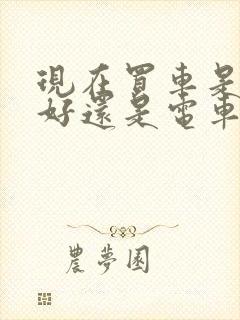 現在買車是
好還是電車
農夢園